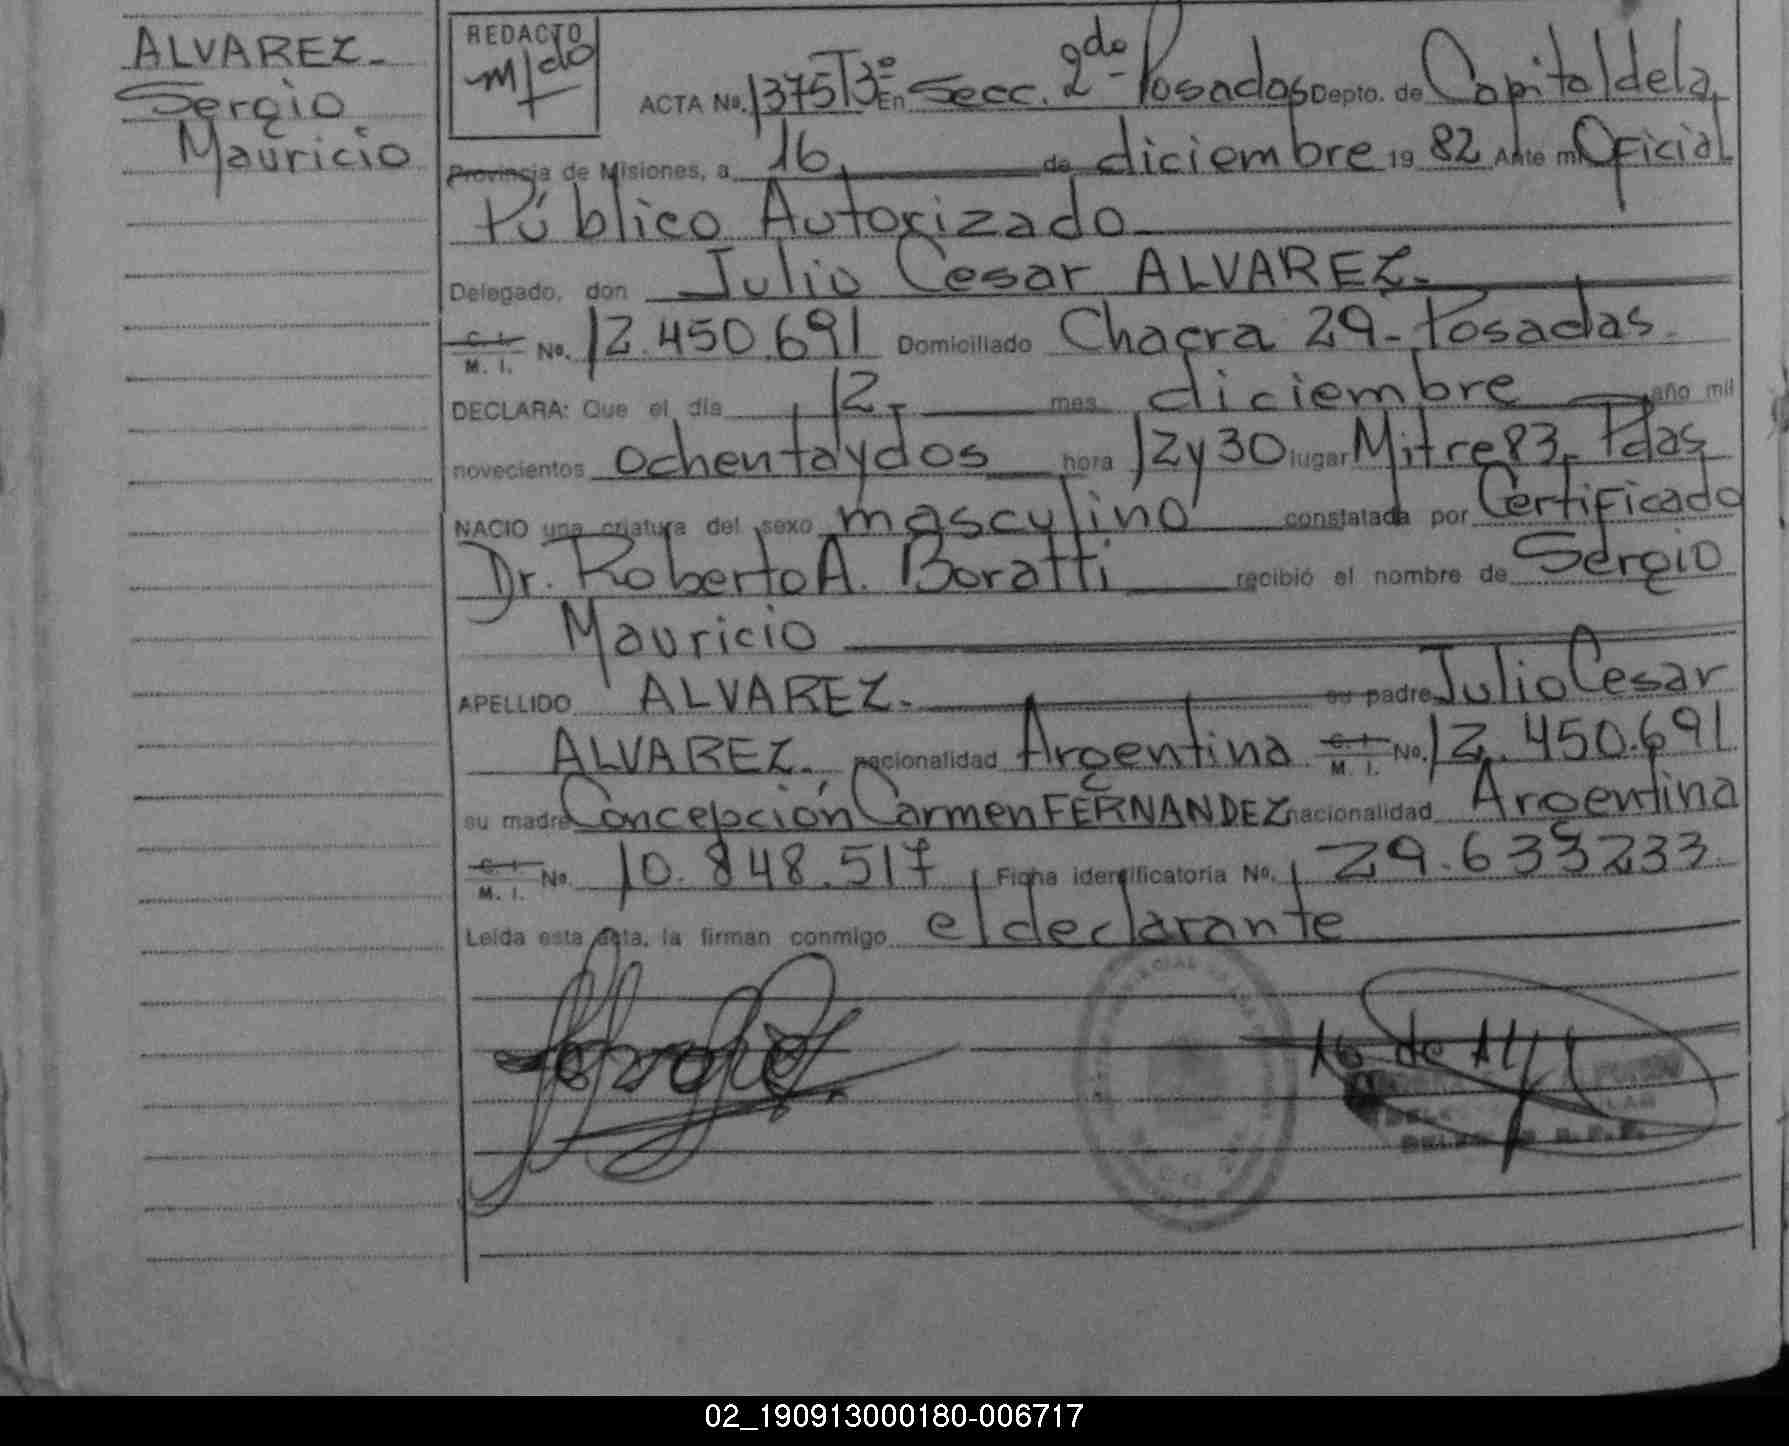 ALVAREZ.
Sergio
Mauricio
REDACTO
ACTA No. 1375 T3º En Secc. 2da Posadas Depto. de Capital de la
Provincia de Misiones, a 16 de diciembre 19 82 Ante mi Oficial
Público Autorizado
Delegado, don Julio Cesar ALVAREZ.
C. I. M. I. No. 12.450.691 Domiciliado Chacra 29 - Posadas.
DECLARA: Que el día 12 mes diciembre año mil
novecientos ochentaydos hora 12 y 30 lugar Mitre 83, Pdas
NACIO una criatura del sexo masculino constatada por Certificado
Dr. Roberto A. Boratti recibió el nombre de Sergio
Mauricio
APELLIDO ALVAREZ. su padre Julio Cesar
ALVAREZ. nacionalidad Argentina C. I. M. I. No. 12.450.691
su madre Concepción Carmen FERNANDEZ nacionalidad Argentina
C. I. M. I. No. 10.848.517 Ficha identificatoria No. 29.633233
Leída esta acta, la firman conmigo el declarante
02_190913000180-006717